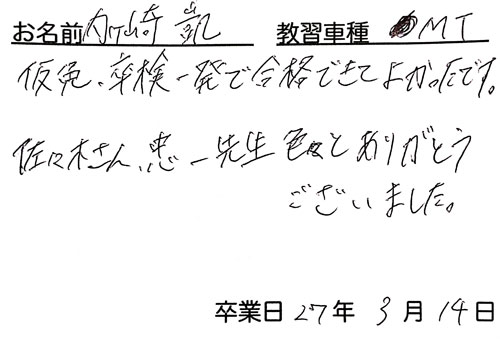 お名前 内ヶ崎 凱 教習車種 MT
仮免、卒検一発で合格できてよかったです。
佐々木さん、忠一先生色々とありがとう
ございました。
卒業日 27年 3月 14日